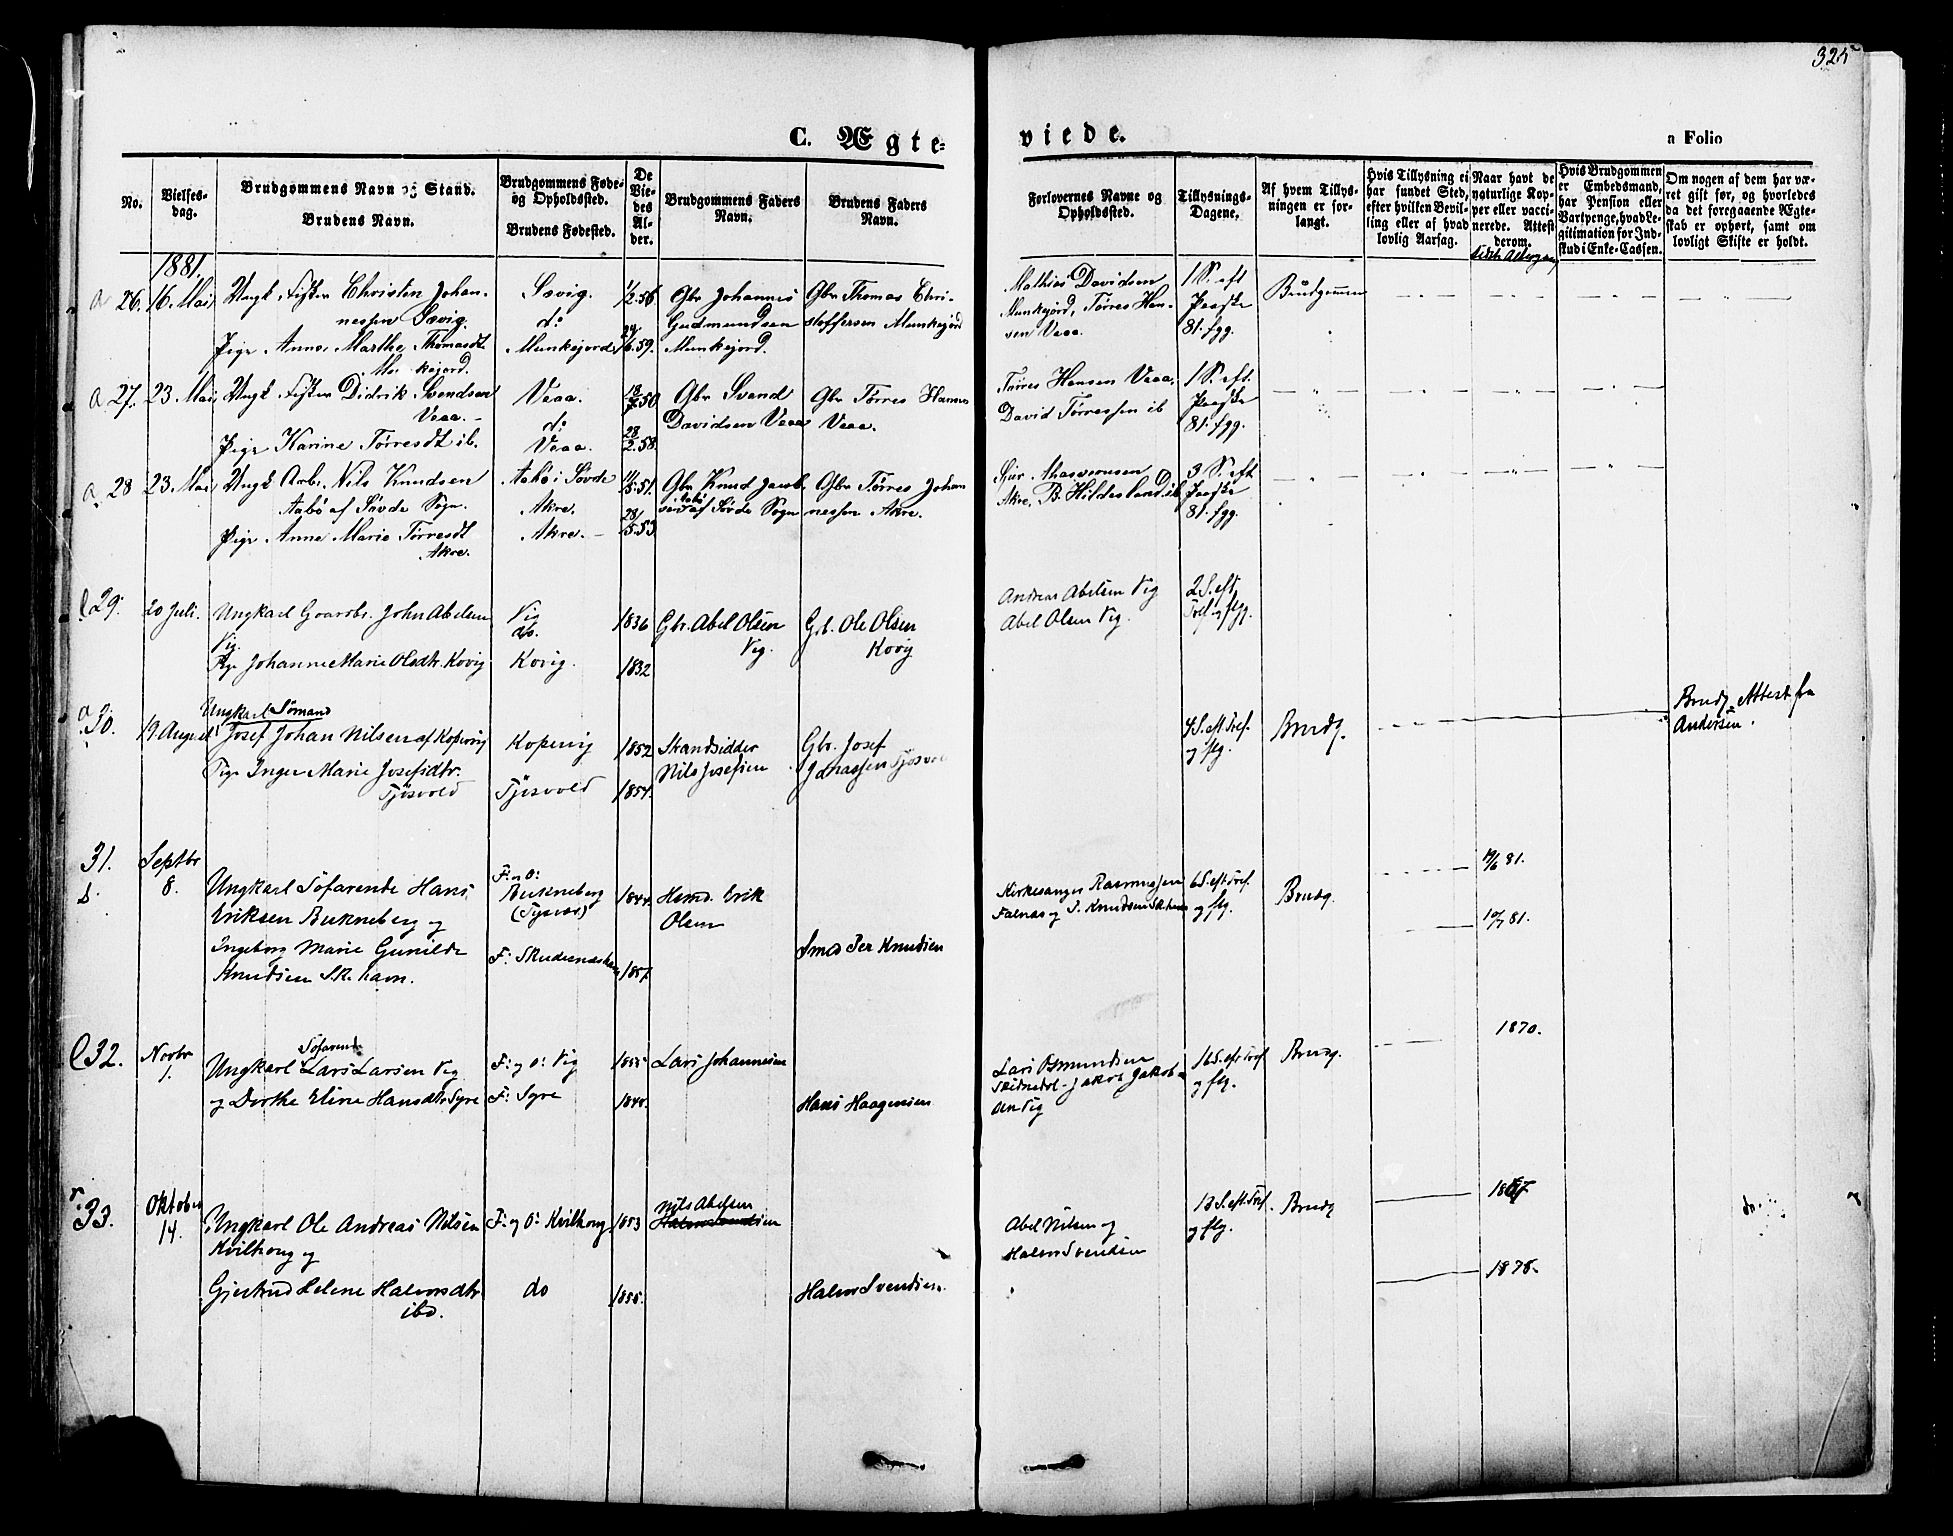 325
C. Ægte=
viede.
a Folio
No.
Vielses-
dag.
Brudgommens Navn og Stand.
Brudens Navn.
Brudgommens Føde-
og Opholdssted.
Brudens Fødested.
De
Vie-
des
Al-
der.
Brudgommens Faders
Navn.
Brudens Faders
Navn.
Forlovernes Navne og
Opholdssted.
Tillysnings-
Dagene.
Af hvem Tillys-
ningen er for-
langt.
Hvis Tillysning ei
har fundet Sted,
efter hvilken Bevil-
ling eller af hvad
lovlig Aarsag.
Naar havt de
naturlige Kop-
per eller vacci-
nerede. Attest
derom.
Hvis Brudgommen
er Embedsmand,
har Pension eller
Vartpenge, hvad Le-
gitimation for Ind-
skud i Enke-Cassen.
Om nogen af dem har væ-
ret gift før, og hvorledes
da det foregaaende Ægte-
skab er ophørt, samt om
lovligt Skifte er holdt.
1881.
a 26. 16. Mai, Ungk. Fisker Christen Johan-
nessen Sævig.
Pige Anne Marthe Thomasdt.
Munkejord.
Sævig.
do
Munkejord.
1/2.56.
24/6.59.
Gbr Johannes
Gudmundsen
Munkejord.
Gbr Thomas Chri-
stoffersen Munkejord
Mathias Davidsen
Munkejord, Tørres Han-
sen Veaa.
1 S. eft
Paaske
81. fgg.
Brudgommen
a 27. 23. Mai, Ungk Fisker Didrik Svendsen
Veaa. -
Pige Karine Tørresdt ib.
Veaa.
do
Veaa.
18/7.50.
28/2.58.
Gbr Svend
Davidsen Veaa
Gbr Tørres Hansen
Veaa.
Tørres Hansen Veaa,
David Tørressen ib
1 S. eft.
Paaske
81. fgg.
a 28 23. Mai, Ungk Arb. Nils Knudsen
Aabø af Søvde Sogn.
Pige Anne Marie Tørresdt
Akre.
Aabø i Søvde
Akre.
Akre. -
11/5.51.
28/5.53
Gbr Knud Jacob-
sen Aabø af Søvde Sogn
Gbr Tørres Johan
nessen Akre.
Sjur
Akre, B. Hildesland ib
3 S. eft
Paaske
81. fgg.
29. 20 Juli. Ungkarl Gaardbr. John Abelsen
Vig.
Pige Johanne Marie Olsdtr. Kovig
Vig
do.
Kovig.
1836
1832
Gbr. Abel Olsen
Vig.
Gbr. Ole Olsen
Kovig
Andreas Abelsen Vig
Abel Olsen Vig.
2 S. eft
Tref. og flg.
a 30. 19 August Ungkarl Sømand
Josef Johan Nilsen af Kopervig
Pige Inger Marie Josefsdtr.
Tjøsvold
Kopervig
Tjøsvold
1852
1854.
Strandsidder
Nils Josefsen
Gbr. Josef
Jonassen Tjøsvol
4 S. eft. Tref.
og flg.
Brudg.
Brudg. Attest fra
Andersen.
31.
s.
Septbr
8.
Ungkarl Søfarende Hans
Eriksen Bukneberg og
Ingeborg Marie Gunilde
Knudsen Sk.havn.
F: og O:
Bukneberg
(Tysvær)
F: Skudesneshavn
1844.
1857.
Hsmd. Erik
Olsen
Smed Per Knudsen
Kirkesanger Rasmussen
Falnæs og S. Knudsen Sk.havn
6 S. eft Tref.
og flg.
Brudg.
14/6 81.
10/7 81.
32.
Novbr
1.
Søfarende
Ungkarl Lars Larsen Vig
og Dorthe Eline Hansdtr. Syre
F: og O: Vig
F: Syre
1855
1844.
Lars Johannesen
Hans Haagensen
Lars Osmundsen
Skidnedal - Jakob Jakob-
sen Vig
16 S. eft Tref
og flg.
Brudg.
1870.
33.
Oktober
14.
Ungkarl Ole Andreas Nilsen
Kvilhoug og
Gjertrud Helene Halvorsdtr
ibd.
F: og O: Kvilhoug
do
1853
1855.
Nils Abelsen
Halvor Svendsen
Halvor Svendsen.
Abel Nilsen og
Halvor Svendsen
13 S. eft. Tref.
og flg.
Brudg
1867
1875.